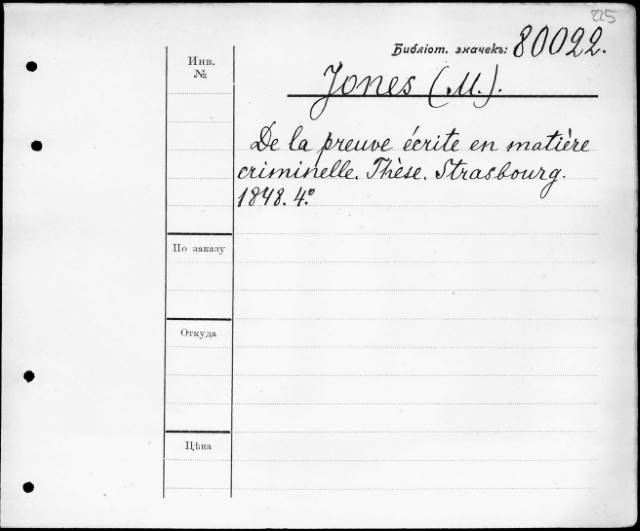 225
Библіот. значекъ: 80022.
Инв.
№
Jones (M.).
De la preuve écrite en matière
criminelle. Thèse. Strasbourg.
1848. 4°
По заказу
Откуда
Цѣна